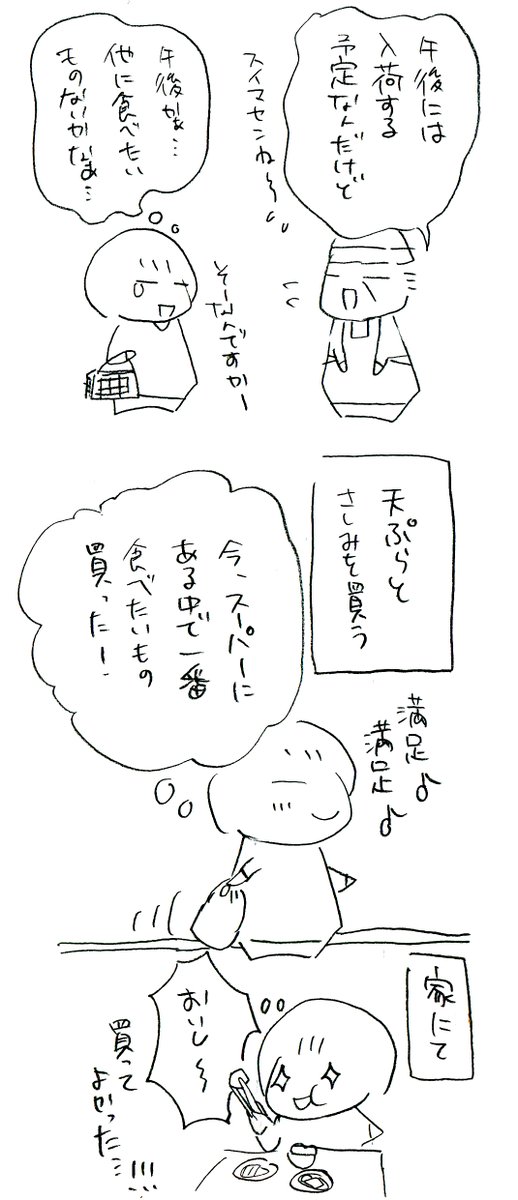 午後には
入荷する
予定なんだけど
スイマセンね〜
午後かぁ…
他に食べたい
ものないかなぁ…
そーなんですかー
天ぷらと
さしみを買う
今、スーパーに
ある中で一番
食べたいもの
買った!
満足♪
満足♪
家にて
おいし〜
買って
よかった…!!!